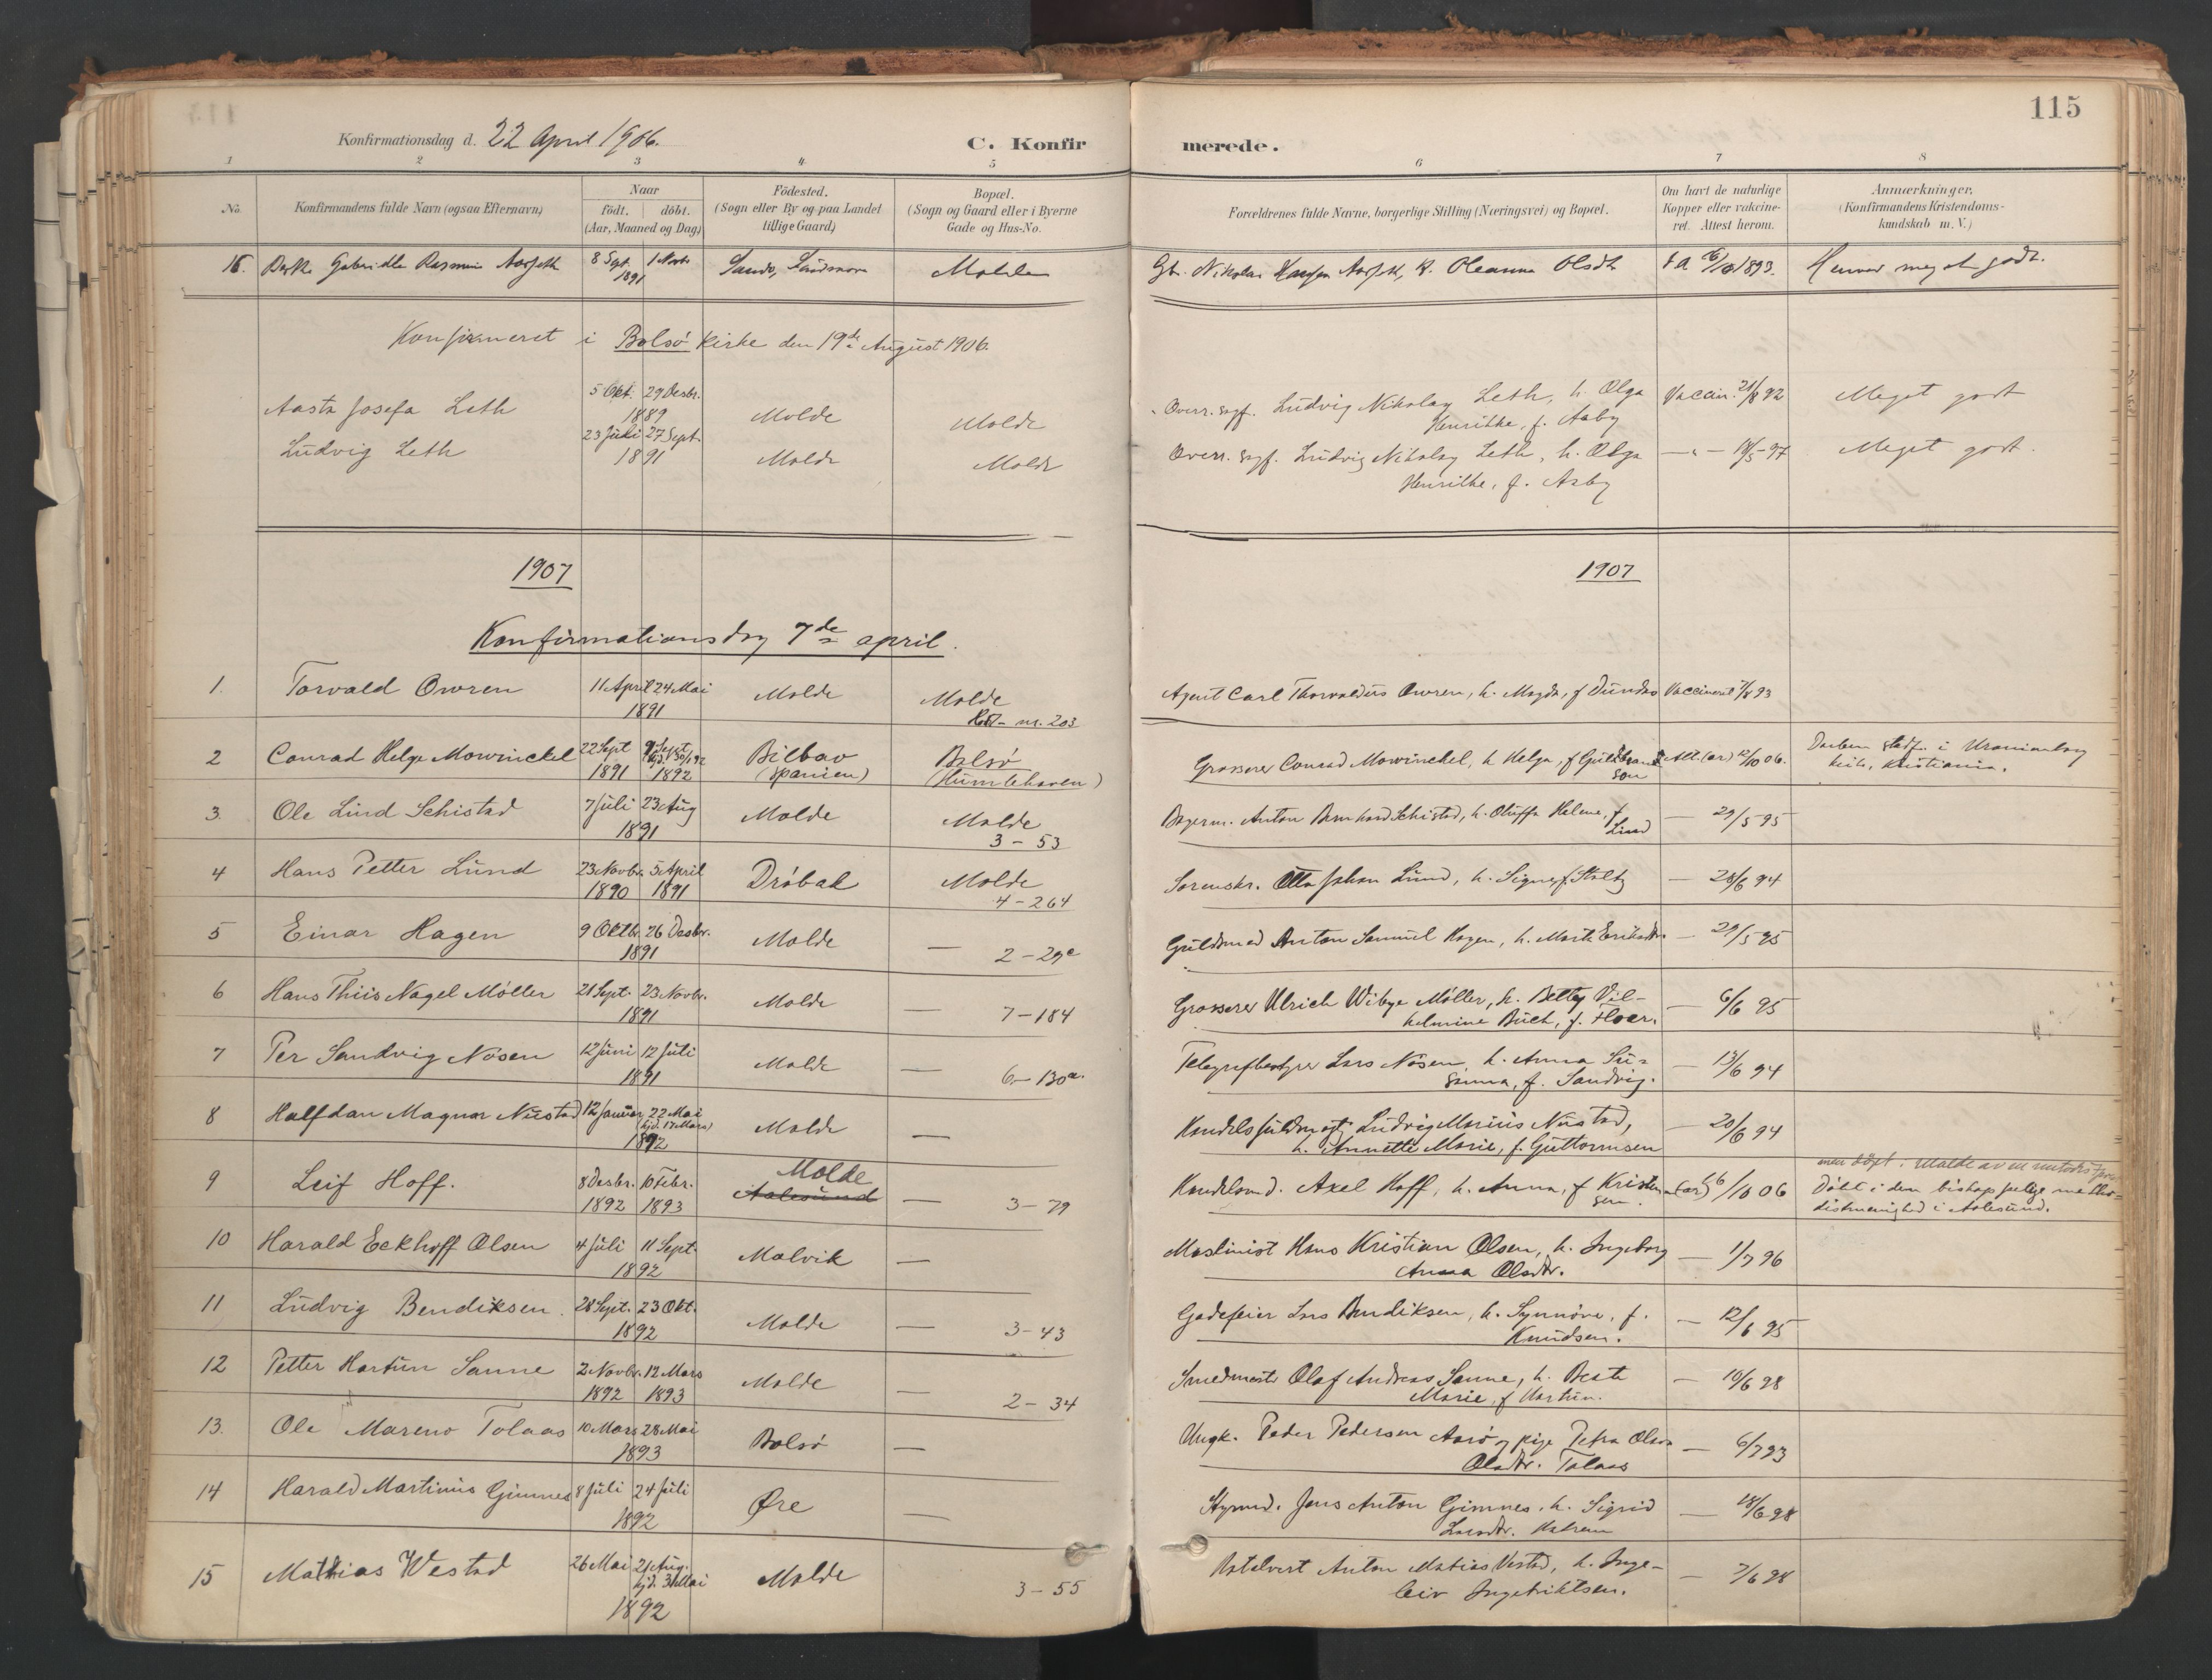 115
Konfirmationsdag d. 22 April 1906.
C. Konfirmerede.
1 2 3 4 5 6 7 8
No.
Konfirmandens fulde Navn (ogsaa Efternavn)
Naar
födt. döbt.
(Aar, Maaned og Dag)
Födested.
(Sogn eller By og paa Landet
tillige Gaard)
Bopæl.
(Sogn og Gaard eller i Byerne
Gade og Hus-No.
Forældrenes fulde Navne, borgerlige Stilling (Næringsvei) og Bopæl.
Om havt de naturlige
Kopper eller vakcine-
ret. Attest herom.
Anmærkninger.
(Konfirmandens Kristendoms-
kundskab m. V.)
16. Gabrielle Rasmine Aarseth 8 Sept. 1 Novbr. 1891 Sande, Søndmøre Molde Gb. Nikolai Hansen Aarseth, h. Oleanna Olsdtr. 1893. meget godt.
Konfirmeret i Bolsö kirke den 19de August 1906.
Aasta Josefa Leth 5 Okt. 29 Desbr. 1889 Molde Molde Overr.sagf. Ludvig Nikolay Leth, h. Olga
Henrikke, f. Aaby Vaccin. 21/8 92 Meget godt
Ludvig Leth 23 Juli 27 Sept. 1891 Molde Molde Overr.sagf. Ludvig Nikolay Leth, h. Olga
Henrikke, f. Aaby — " — 18/5 97 Meget godt.
1907 1907
Konfirmationsdag 7de april.
1. Torvald Owren 11 April 24 Mai 1891 Molde Molde
nr. 203 Agent Carl Thorvaldus Owren, h. Magda, f Dundas Vaccineret 93
2 Conrad Helge Mowinckel 22 Sept 1891 9 Sept. 1892 Bilbao
(Spanien) Bolsö
(Humlehaven) Grosserer Conrad Mowinckel, h Helga, f Guldbrand
son Att. (ar) 12/10 06. Daaben stadf. i Uranienborg
kirke, Kristiania.
3. Ole Lind Schistad 7 Juli 23 Aug 1891 Molde Molde
3 – 53 Bagerm. Anton Bernhard Schistad, h. Oluffa Helene, f
Lind — 29/5 95
4 Hans Petter Lund 23 Novbr. 1890 5 April 1891 Dröbak Molde
4 – 264 Sorenskr. Otto Johan Lund, h. Signe, f. Stoltz — 28/6 94
5 Einar Hagen 9 Oktbr. 26 Desbr. 1891 Molde — 2 – 29c Guldsmed Anton Samuel Hagen, h. Marit Eriksdtr. — 29/5 95
6 Hans Thiis Nagel Möller 21 Sept. 23 Novbr. 1891 Molde — 7 – 184 Grosserer Ulrich Wibye Möller, h. Betty Vil-
helmine Buch, f. Hoer. — 6/6 95
7 Per Sandvig Nösen 12 Juni 12 Juli 1891 Molde — 6 – 130a. Telegrafbestyrer Lars Nösen, h. Anna Su-
sanna, f. Sandvig. — 13/6 94
8 Halfdan Magnar Nustad 12 Januar 22 Mai
(hjd. 17 Mars) 1892 Molde — Handelsfuldmægt. Ludvig Marius Nustad,
h. Annette Marie, f. Guttormsen — 20/6 94
9 Leif Hoff. 8 Desbr. 1892 10 Febr. 1893 Molde
Aalesund — 3 – 79 Handelsmd. Axel Hoff, h. Anna, f Kristen
sen. (ar) 16/10 06 men döpt i Molde av en
Döbt i den biskoppelige metho-
distmenighed i Aalesund.
10 Harald Eckhoff Olsen 4 Juli 11 Sept. 1892 Malvik — Maskinist Hans Kristian Olsen, h. Ingeborg
Anna Olsdtr. — 1/7 96
11 Ludvig Bendiksen. 28 Sept. 23 Okt. 1892 Molde — 3 – 43 Gadefeier Lars Bendiksen, h. Synnöve, f.
Knudsen. — 12/6 95
12 Petter Hartun Sanne 2 Novbr. 1892 12 Mars 1893 Molde — 2 – 34 Smedmester Olaf Andreas Sanne, h. Berte
Marie, f Hartun. — 10/6 98
13. Ole Mareno Tolaas 10 Mars 28 Mai 1893 Bolsö — Ungk. Peder Pedersen Aarö og pige Petra Olava
Olsdtr. Tolaas — 6/7 93
14 Harald Martinus Gimnes 8 Juli 24 Juli 1892 Øre — Styrmd. Jens Anton Gimnes, h. Sigrid
Larsdtr. — 18/6 98
15 Mathias Westad 26 Mai 21 Aug.
hjd. 31 Mai 1892 Molde — 3 – 55 Hotelvert Anton Matias Vestad, h. Inge-
leiv Ingebriktsen. — 7/6 98